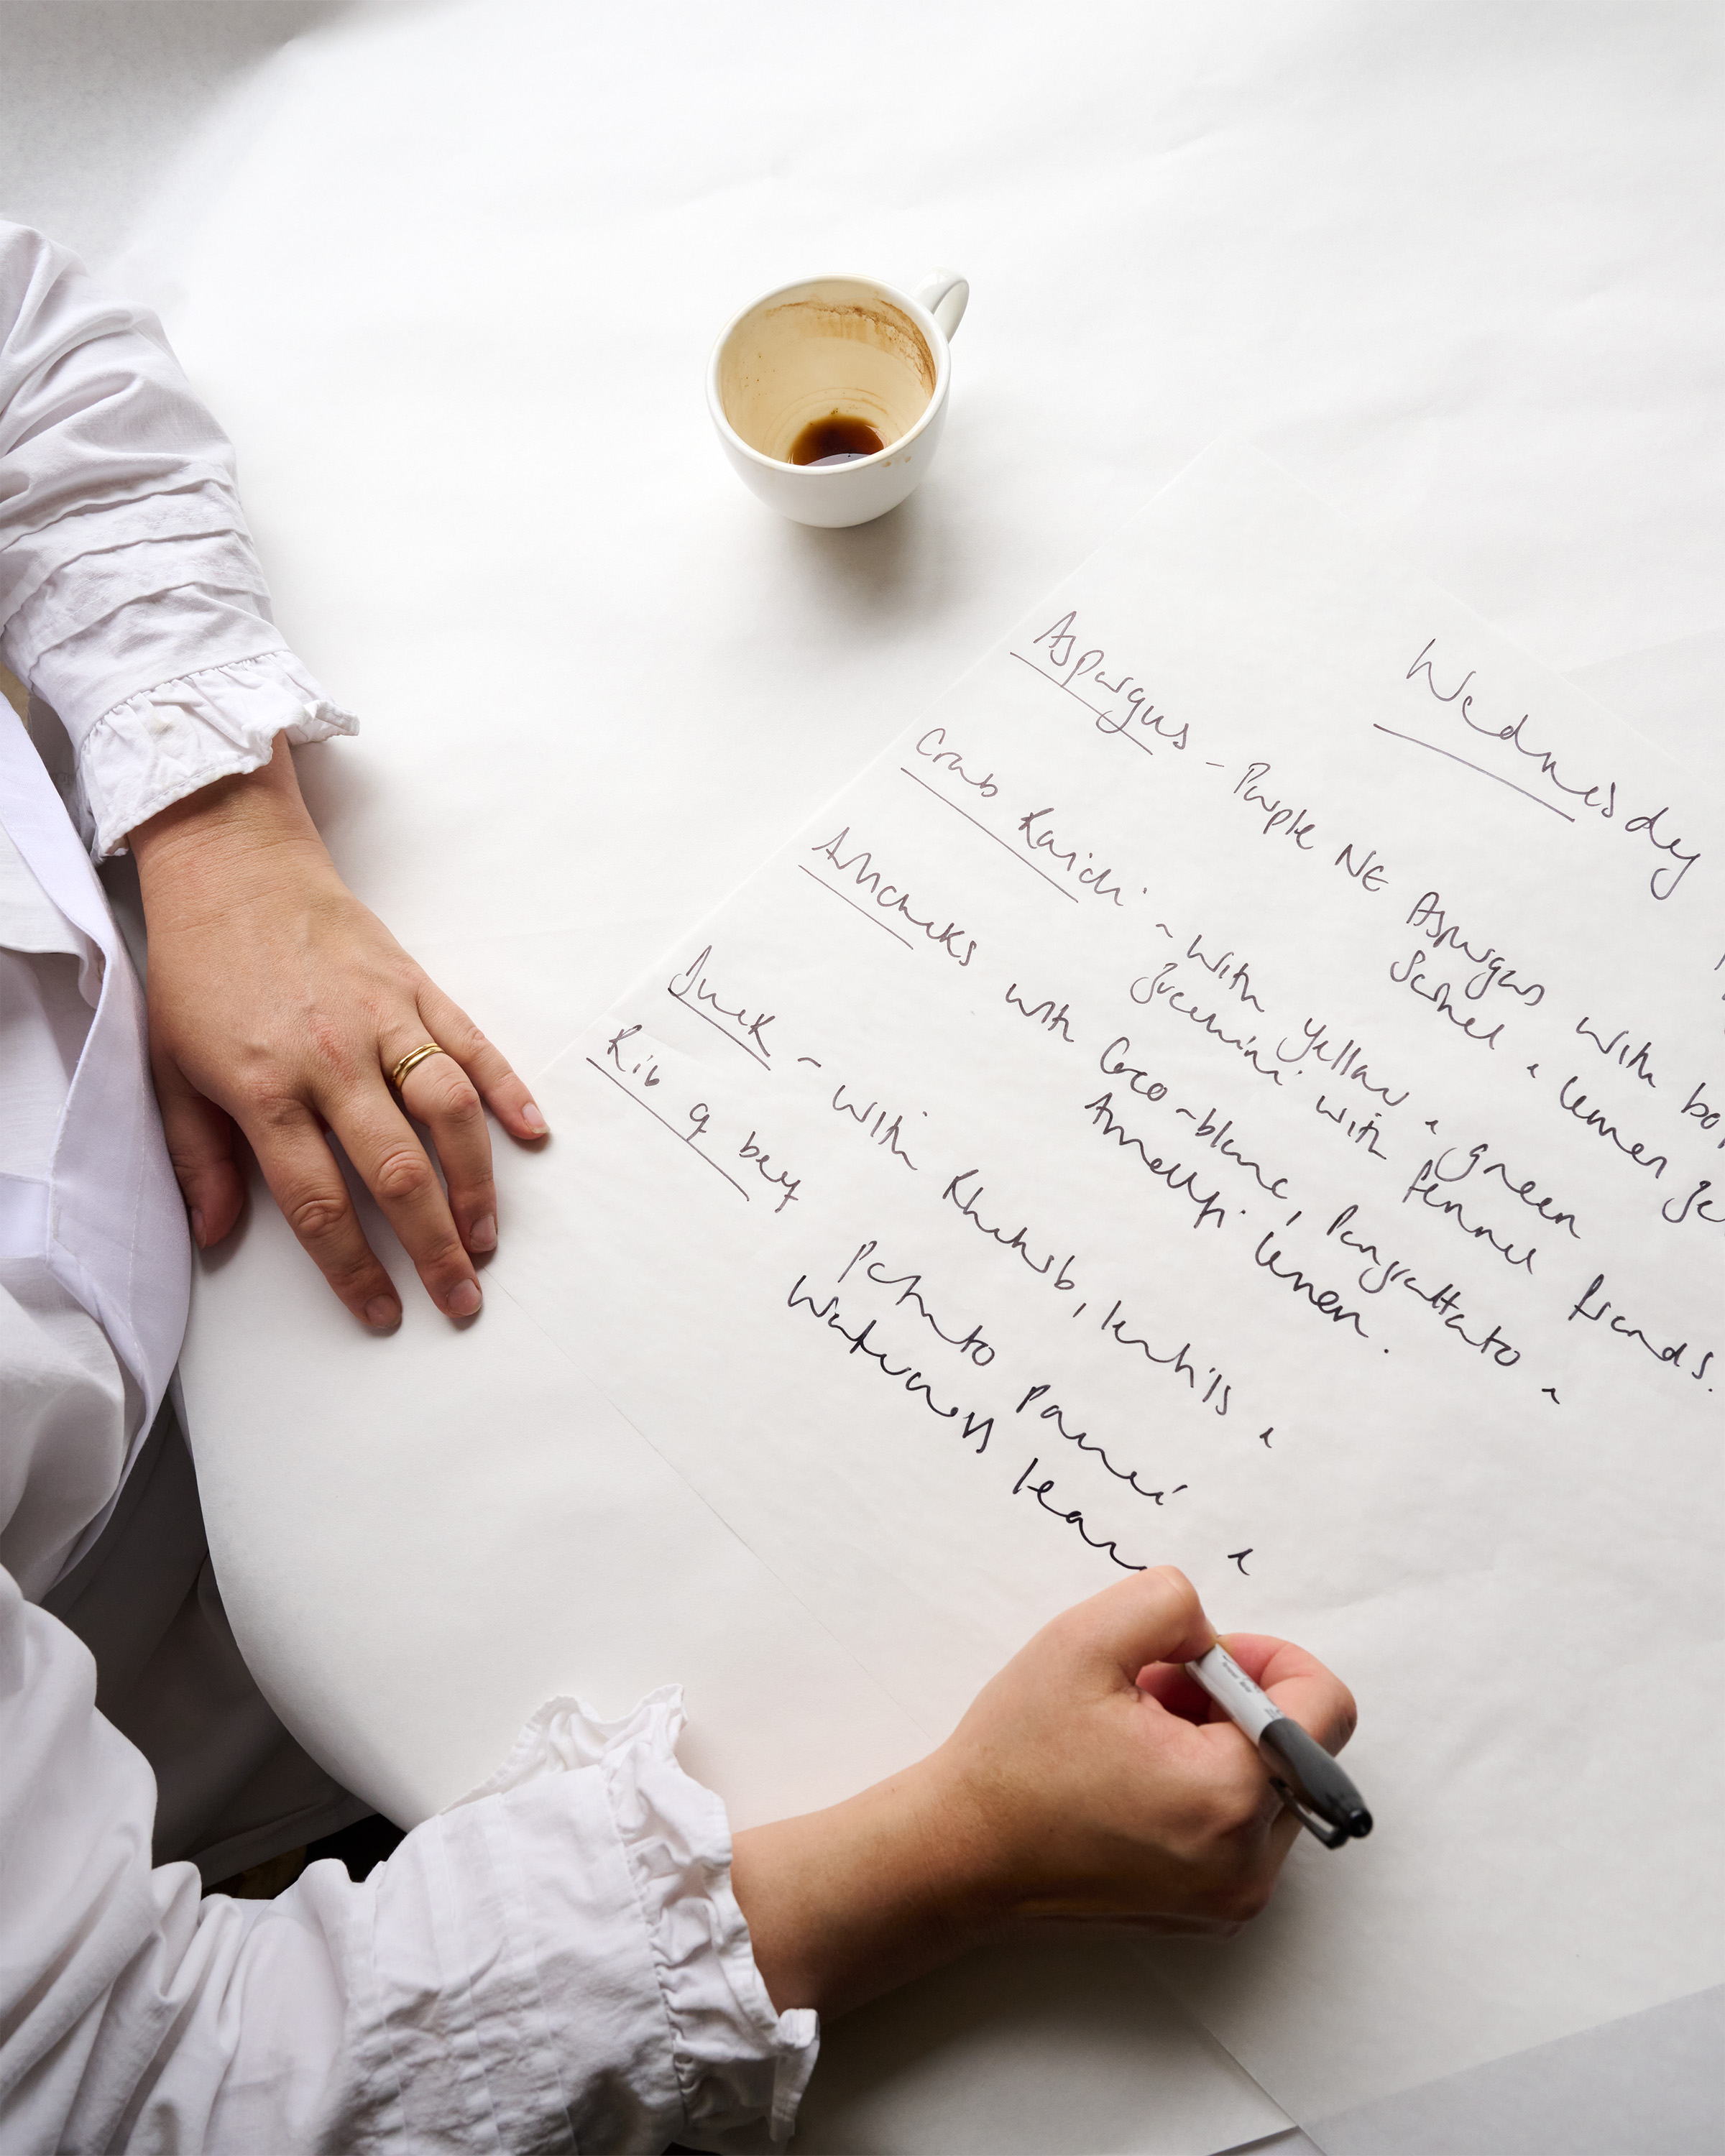 Wednesday
Asparagus - Purple NE Asparagus with
Sorrel & lemon
Crab Ravioli - with yellow & green
Zucchini with fennel fronds.
Artichokes with Coco-blanc, Pangrattato &
Amalfi lemon.
Duck - with Rhubarb, lentils &
Rib of beef Potato &
Watercress